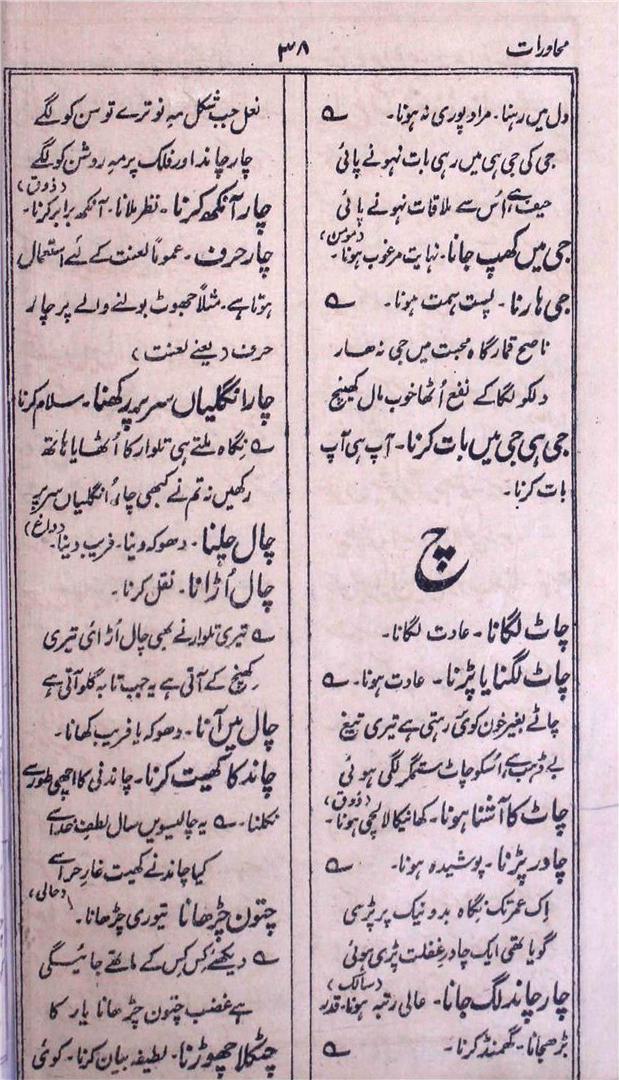 محاورات
۳۸
دل میں رہنا۔ مراد پوری نہ ہونا۔ ؎
جی کی جی ہی میں رہی بات نہونے پائی
حیف ہے اُس سے ملاقات نہونے پائی
(مومن)
جی میں کھپ جانا۔ نہایت مرغوب ہونا۔
جی ہارنا۔ پست ہمت ہونا۔ ؎
ناصح قمارگاہ محبت میں جی نہ ھار
دلکو لگا کے نفع اُٹھا خوب مال کھینچ
جی ہی جی میں بات کرنا۔ آپ ہی آپ
بات کرنا۔
چ
چاٹ لگانا۔ عادت لگانا۔
چاٹ لگنا یا پڑنا۔ عادت ہونا۔ ؎
چاٹے بغیر خون کوئی رہتی ہے تیری تیغ
بے ڈھب ہے اسکو چاٹ ستمگر لگی ہوئی
(ذوق)
چاٹ کا آشنا ہونا۔ کھانیکا لالچی ہونا۔
چادر پڑنا۔ پوشیدہ ہونا۔ ؎
اِک عمر تک نگاہ بد و نیک پر پڑی
گویا تھی ایک چادر غفلت پڑی ہوئی
(سالک)
چار چاند لگ جانا۔ عالی رتبہ ہونا۔ قدر
بڑھجانا۔ گھمنڈ کرنا۔ ؎
نعل جب شکل مہِ نو ترے توسن کو لگے
چار چاند اور فلک پر مہ روشن کو لگے
(ذوق)
چار آنکھ کرنا۔ نظر ملانا۔ آنکھ برابر کرنا۔
چار حرف۔ عموماً لعنت کے لئے استعمال
ہوتا ہے۔ مثلاً جھوٹ بولنے والے پر چار
حرف (یعنے لعنت)
چار انگلیاں سر پر رکھنا۔ سلام کرنا
؎ نگاہ ملتے ہی تلوار کا اُٹھایا ہاتھ
رکھیں نہ تم نے کبھی چار اُنگلیاں سر پر
(داغ)
چال چلنا۔ دھوکہ دینا۔ فریب دینا۔
چال اُڑانا۔ نقل کرنا۔
؎ تیری تلوار نے بھی چال اُڑائی تیری
کھینچ کے آتی ہے یہ جب تا بہ گلو آتی ہے
چال میں آنا۔ دھوکہ یا فریب کھانا۔
چاند کا کھیت کرنا۔ چاندنی کا اچھی طور سے
نکلنا۔ ؎ یہ چالیسویں سال لطف خدا سے
کیا چاند نے کھیت غار حرا سے
(حالی)
چتون چڑھانا تیوری چڑھانا۔
؎ دیکھئے کس کس کے ماتھے جائیگی
ہے غضب چتون چڑھانا یار کا
چٹکلا چھوڑنا۔ لطیفہ بیان کرنا۔ کوئی